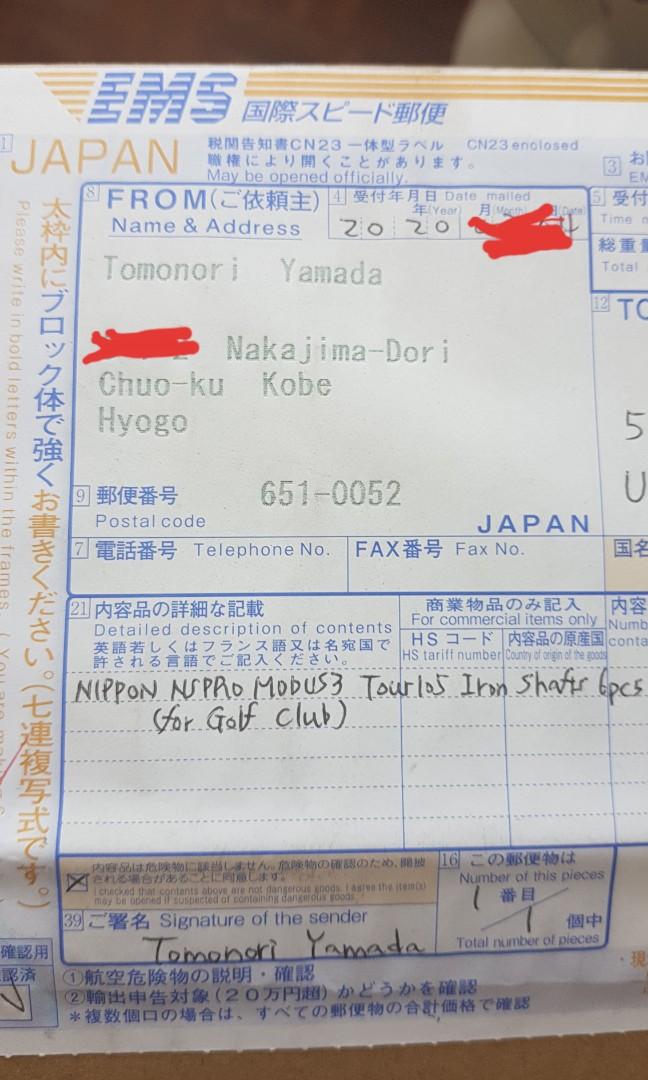 EMS 国際スピード郵便
JAPAN
税関告知書CN23一体型ラベル CN23 enclosed
職権により開くことがあります。
May be opened officially.
3 お
EM
太枠内にブロック体で強くお書きください。(七連複写式です。)
Please write in bold letters within the frames. (You are
8 FROM(ご依頼主)
Name & Address
4 受付年月日 Date mailed
年(Year) 月(Month) (Date)
2020
5 受付
Time
総重量
Total
12 TO
Tomonori Yamada
Nakajima-Dori
Chuo-ku Kobe
Hyogo
5
U
9 郵便番号 651-0052
Postal code
JAPAN
7 電話番号 Telephone No.
FAX番号 Fax No.
国名
21 内容品の詳細な記載
Detailed description of contents
英語若しくはフランス語又は名宛国で
許される言語でご記入ください。
商業物品のみ記入
For commercial items only
HSコード
HS tariff number
内容品の原産国
Country of origin of the goods
内容
Numb
conta
NIPPON NSPRO MODUS3 Tour105 Iron Shafts 6pcs
(for Golf Club)
内容品は危険物に該当しません。危険物の確認のため、開披
される場合があることに同意します。
I checked that contents above are not dangerous goods. I agree the item(s)
may be opened if suspected of containing dangerous goods.
16 この郵便物は
Number of this pieces
1 番目
1 個中
Total number of pieces
39 ご署名 Signature of the sender
Tomonori Yamada
確認用
認済
①航空危険物の説明・確認
②輸出申告対象(20万円超)かどうかを確認
*複数個口の場合は、すべての郵便物の合計価格で確認
・現